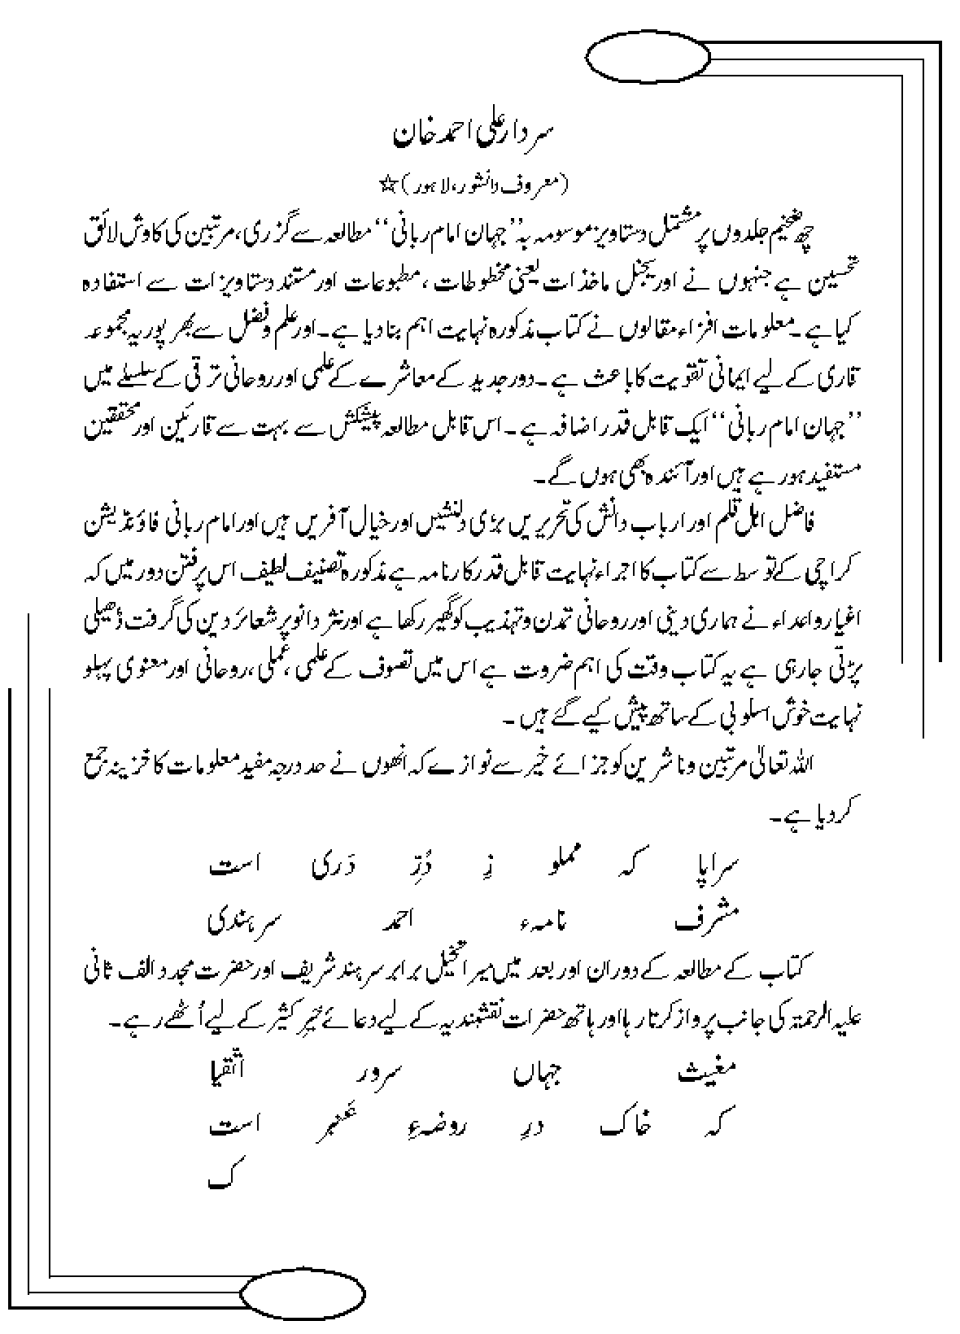 سردار علی احمد خان
(معروف دانشور، لاہور)☆
چھ ضخیم جلدوں پر مشتمل دستاویز موسومہ بہ ’’جہان امام ربانی‘‘ مطالعہ سے گزری، مرتبین کی کاوش لائق
تحسین ہے جنہوں نے اوریجنل ماخذات یعنی مخطوطات، مطبوعات اور مستند دستاویزات سے استفادہ
کیا ہے۔ معلومات افزاء مقالوں نے کتاب مذکورہ نہایت اہم بنا دیا ہے۔ اور علم و فضل سے بھر پور یہ مجموعہ
قاری کے لیے ایمانی تقویت کا باعث ہے۔ دور جدید کے معاشرے کے علمی اور روحانی ترقی کے سلسلے میں
’’جہان امام ربانی‘‘ ایک قابل قدر اضافہ ہے۔ اس قابل مطالعہ پیشکش سے بہت سے قارئین اور محققین
مستفید ہو رہے ہیں اور آئندہ بھی ہوں گے۔
فاضل اہل قلم اور ارباب دانش کی تحریریں بڑی دلنشیں اور خیال آفریں ہیں اور امام ربانی فاؤنڈیشن
کراچی کے توسط سے کتاب کا اجراء نہایت قابل قدر کارنامہ ہے مذکورہ تصنیف لطیف اس پرفتن دور میں کہ
اغیار و اعداء نے ہماری دینی اور روحانی تمدن و تہذیب کو گھیر رکھا ہے اور نئژدانو پر شعائر دین کی گرفت ڈھیلی
پڑتی جارہی ہے یہ کتاب وقت کی اہم ضروت ہے اس میں تصوف کے علمی، عملی، روحانی اور معنوی پہلو
نہایت خوش اسلوبی کے ساتھ پیش کیے گئے ہیں۔
اللہ تعالیٰ مرتبین و ناشرین کو جزائے خیر سے نوازے کہ انھوں نے حد درجہ مفید معلومات کا خزینہ جمع
کردیا ہے۔
سراپا کہ مملو زِ دُرِّ دَری است
مشرف نامہء احمد سرہندی
کتاب کے مطالعہ کے دوران اور بعد میں میرا تخیل برابر سرہند شریف اور حضرت مجدد الف ثانی
علیہ الرحمۃ کی جانب پرواز کرتا رہا اور ہاتھ حضرات نقشبندیہ کے لیے دعائے خیرِ کثیر کے لیے اُٹھے رہے۔
مغیث جہاں سرور اتقیا
کہ خاک درِ روضہءِ عَنبر است
ک